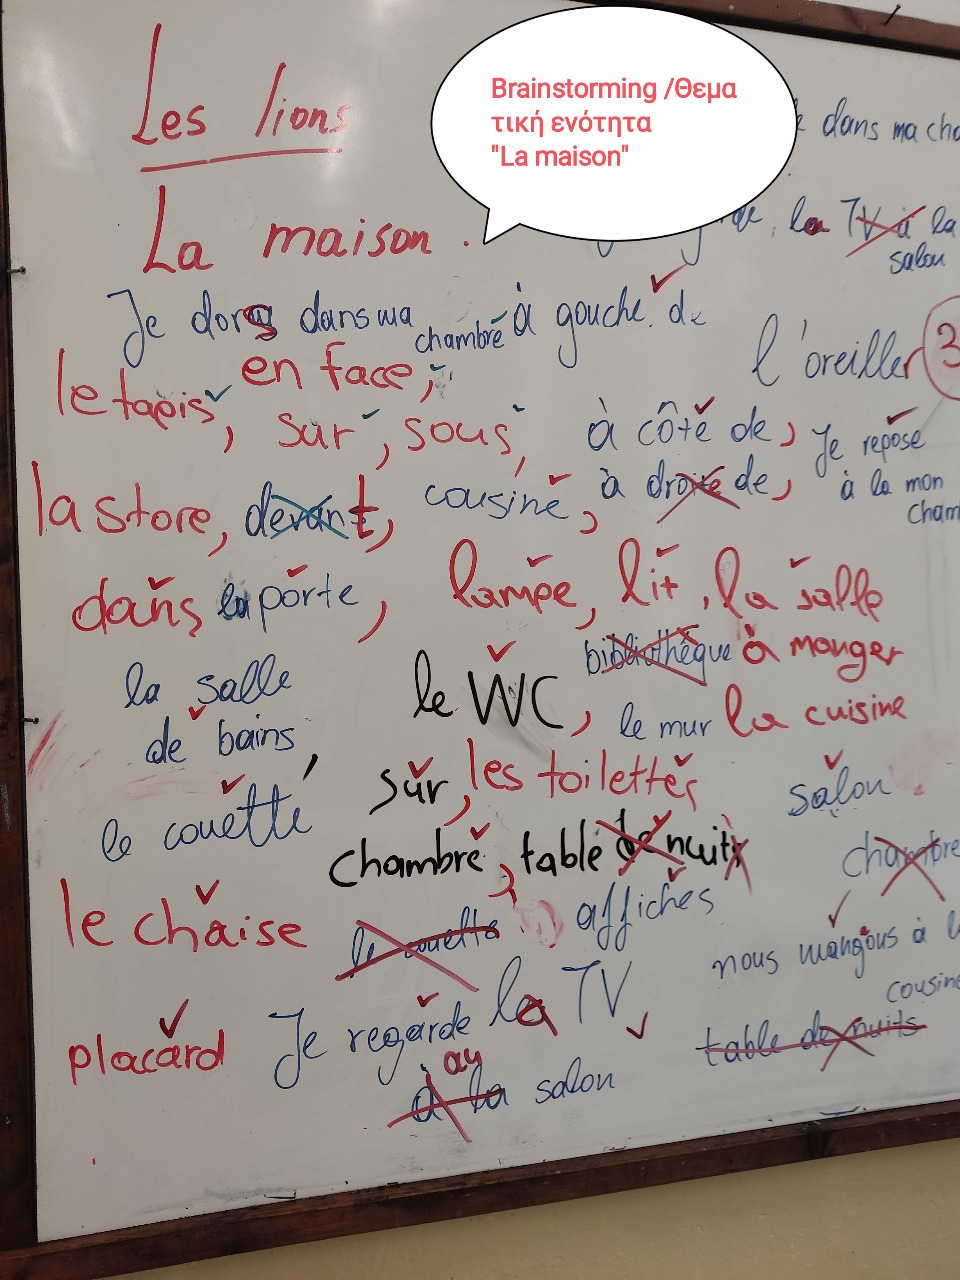 Les lions
Brainstorming /Θεμα
τική ενότητα
"La maison"
dans ma
La maison.
la TV à la
salon
Je dors dans ma chambre à gauche de
l'oreiller 3
le tapis, en face,
sur, sous, à côté de,
Je repose
à la mon
la store, devant, cousine, à droite de,
dans la porte, lampe, lit, la salle
à manger
bibliothèque
la salle
de bains,
le WC,
le mur la cuisine
le couette
sur, les toilettes
salon
chambre, table de nuit
chambre
le chaise
le couette
affiches
nous mangons à
placard
Je regarde la TV
table de nuits
au
à la salon